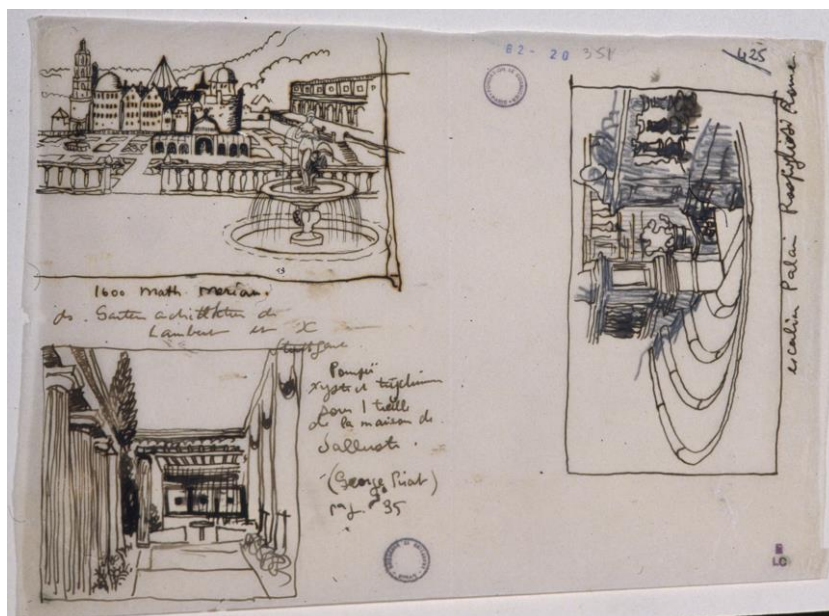 B2 - 20 351
425
1600 Math. Merian.
ds. Garten architektur de
Lambert et
Stuttgart
Pompéi
xyste et triclinium
sous 1 treille
de la maison de
Salluste.
(George Riat)
pag. 35
escalier Palais Rospigliosi Rome.
LC